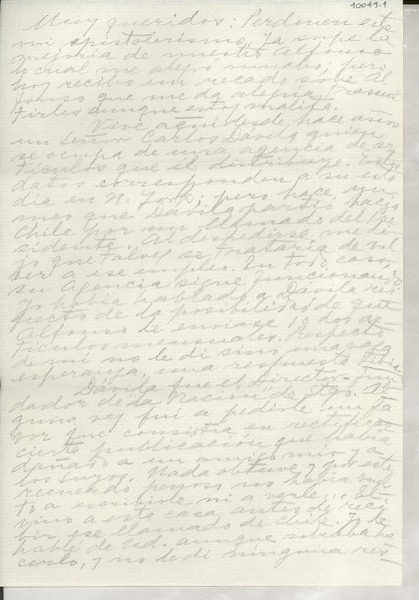 10049.1
Muy queridos: Perdonen este
mi epistolerismo. Ya supe la
mejoría de nuestro Alfonso
lo cual me alegró mucho; pero
hoy recibo un recado sobre Al
fonso que me da alegría trasmi
tirles aunque estoy malita.
Vive aquí desde hace años
un Señor Carlos Dávila quien
se ocupa de una agencia de ar
tículos que él distribuye. Estos
datos corresponden a su esta
día en N. York, pero hace un
mes que Dávila partió hacia
Chile por un llamado del Pre
sidente. Al despedirse me di
jo que talvez se trataría de vol
ver a ese empleo. En todo caso,
su Agencia sigue funcionando.
Yo había hablado a Dávila res
pecto de la posibilidad de que
Alfonso le enviase 1 o 2 ar
tículos mensuales. Respecto
de mí no le di sino una vaga
esperanza, una respuesta
Dávila fue el Director fun
dador de La Nación de Stgo. Al
guna vez fui a pedirle un fa
vor que consistía en rectificar
cierta publicación que había
dañado a un amigo mío y a
los suyos. Nada obtuve, y por este
recuerdo penoso no había vuel
to a escribirle ni a verle. El
vino a esta casa antes de reci
bir ese llamado de Chile. Yo le
hablé de Ud. aunque
, y no le di ninguna res